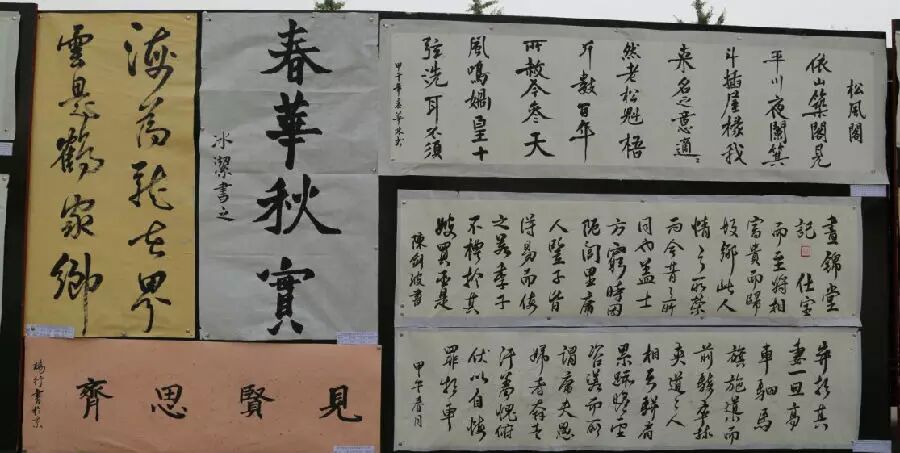 海為龍世界
雲是鶴家鄉
春華秋實
冰潔書之
見賢思齊
松風閣
依山築閣見
平川夜闌箕
斗插屋椽我
來名之意適
然老松魁梧
數百年
所赦今參天
風鳴媧皇十
弦洗耳不須
晝錦堂
記 仕宦
而至將相
富貴而歸
故鄉此人
情之所榮
而今昔之所
同也蓋士
方窮時困
阨閭里庸
人豎子皆
得易而侮
之若季子
不禮於其
嫂買臣見
陳劍波書
棄於其
妻一旦高
車駟馬
旗旄導而
前騎卒擁
夾道之人
相與駢肩
累跡瞻望
咨嗟而所
謂庸夫愚
婦者奔走
汗羞愧俯
伏以自悔
罪於車
甲午春月